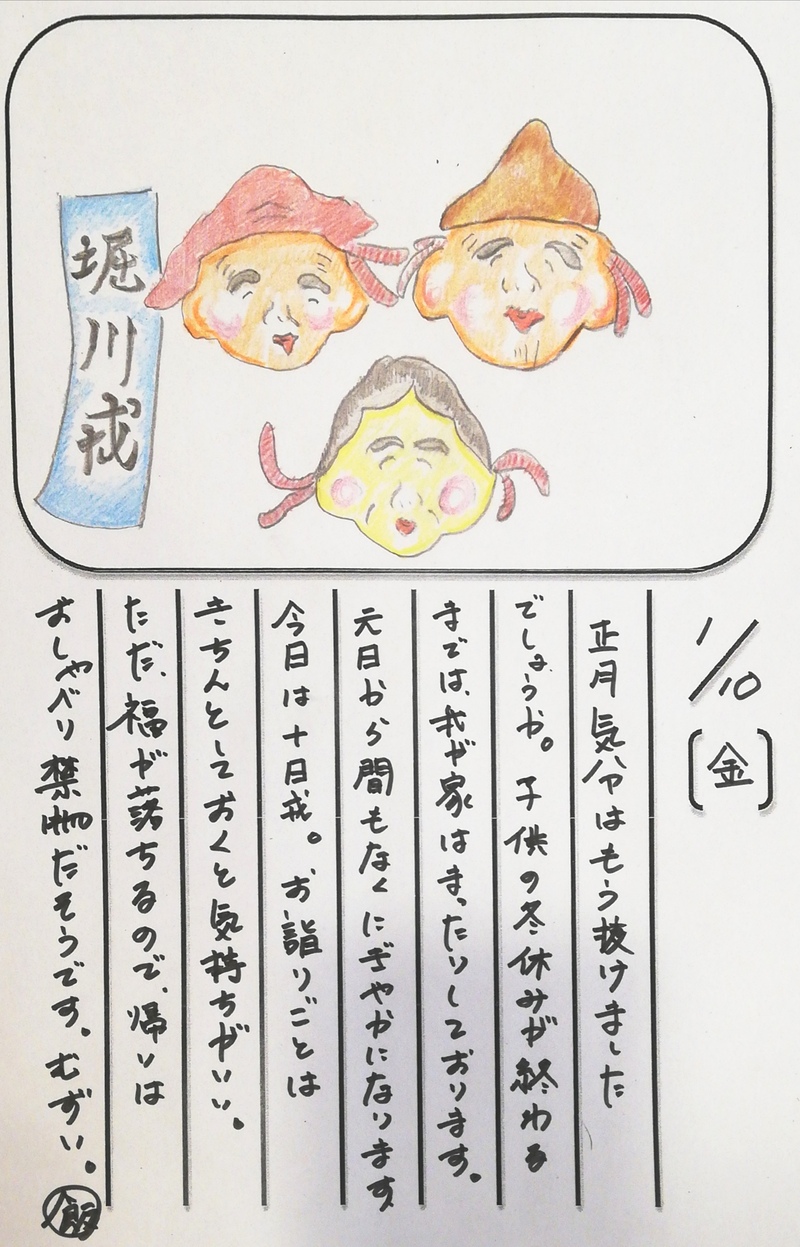 堀川戎
1/10
(金)
正月気分はもう抜けました
でしょうか。子供の冬休みが終わる
までは、我が家はまったりしております。
元日から間もなくにぎやかになります
今日は十日戎。お詣りごとは
きちんとしておくと気持ちがいい。
ただ、福が落ちるので、帰りは
おしゃべり禁物だそうです。むずい。
飯